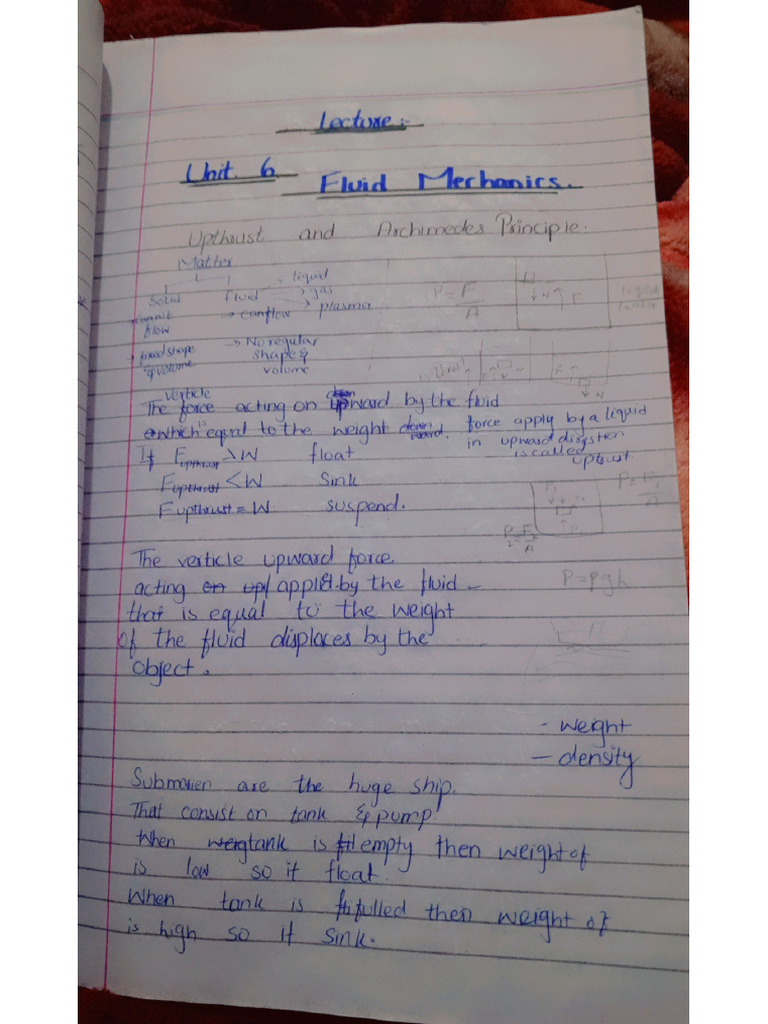 Lecture :-
Unit 6 Fluid Mechanics.
Upthrust and Archimedes Principle.
Matter
Solid Fluid → liquid
→ gas
→ plasma
→ cannot flow → canflow
→ fixed shape & volume → No regular shape & volume
P = F/A
W F
verticle down
The force acting on upward by the fluid
which is equal to the weight downward. force apply by a liquid
in upward direction
is called
uptrust.
If Fupthrust > W float
Fupthrust < W Sink
Fupthrust = W suspend.
P = F1/A
P2 = F2/A
P = ρgh
The verticle upward force.
acting on up/ applied by the fluid
that is equal to the weight
of the fluid displaces by the
object.
- weight
- density
Submarien are the huge ship.
That consist on tank & pump
When weig tank is fil empty then weight of
is low so it float.
When tank is fulfulled then weight of
is high so it sink.